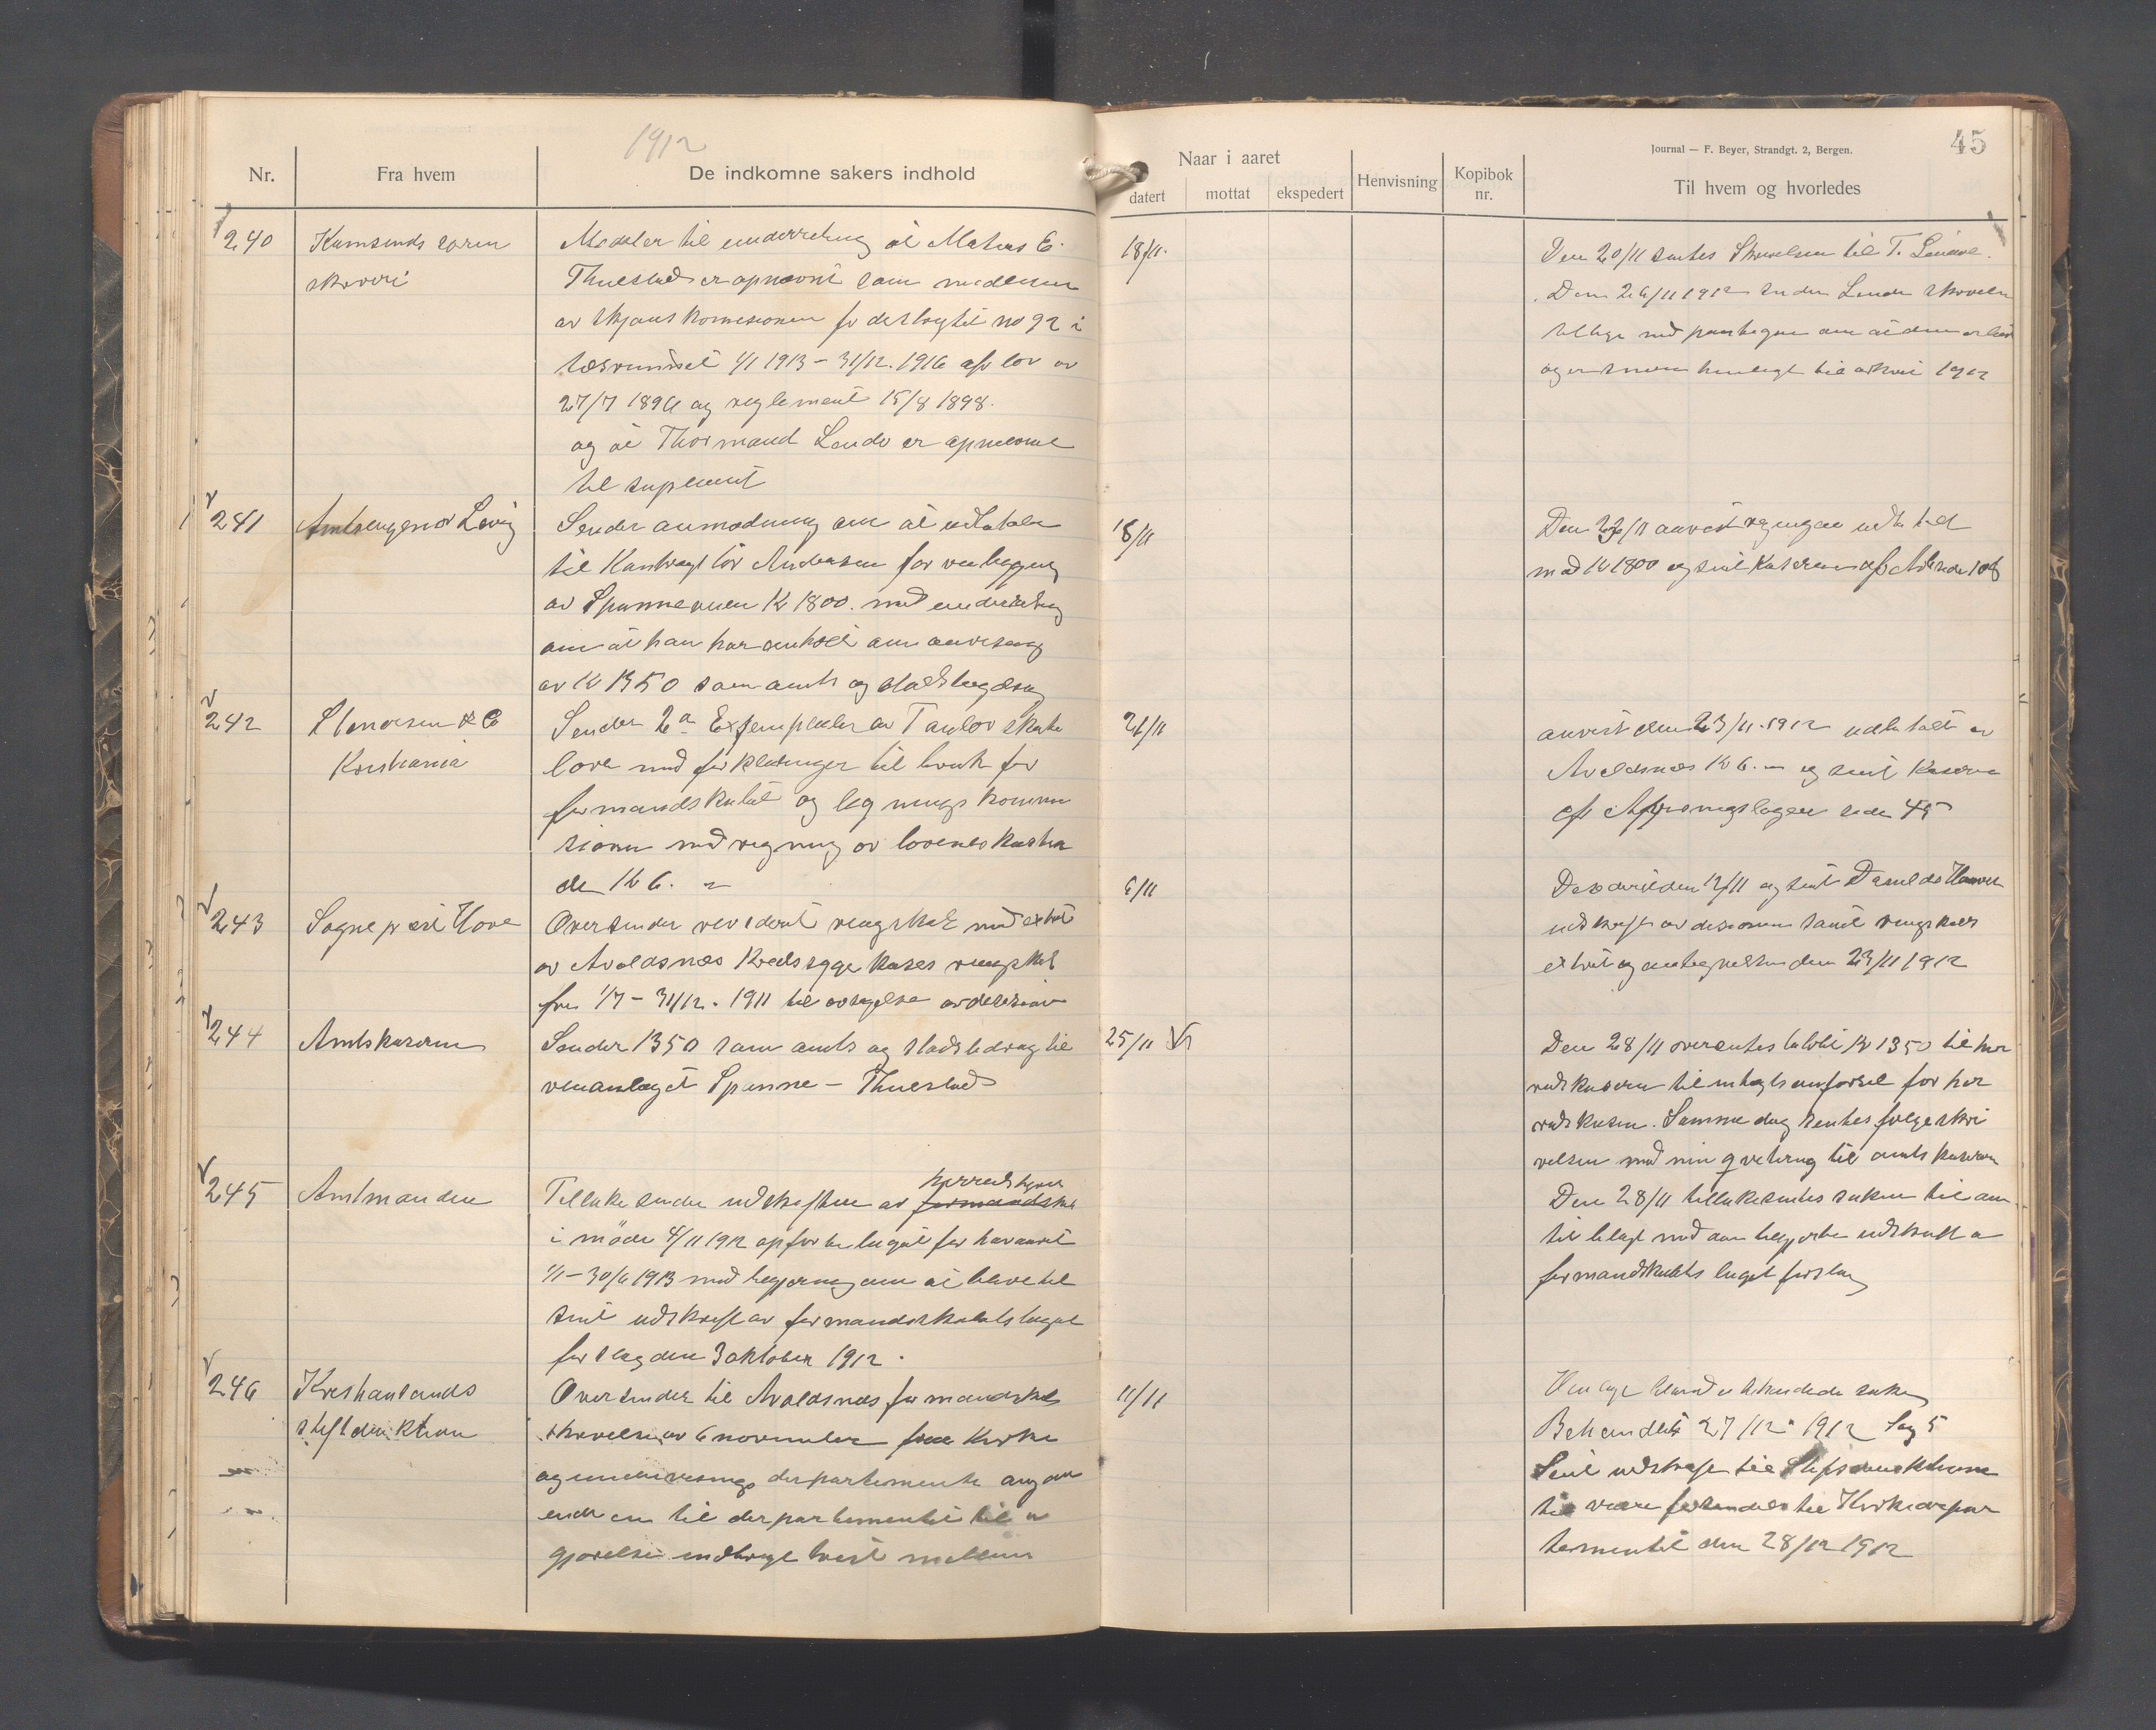 1912
Nr.
Fra hvem
De indkomne sakers indhold
Naar i aaret
datert
mottat
ekspedert
Henvisning
Kopibok
nr.
Journal — F. Beyer, Strandgt. 2, Bergen.
45
Til hvem og hvorledes
240
Karmsunds soren
skriveri
Medeler til underretning at Matias E.
Thuestad er opnævnt som medlem
av skjønskomisionen for destrigtet no 92 i
tidsrummet 1/1 1913 - 31/12. 1916 af lov av
27/7 1896 og reglement 15/8 1898.
og at Thormand Lande er opnævnt
til supleant
18/11.
Den 20/11 sentes Skrivelsen til T. Lande.
Den 26/11 1912 sender Lande skrivelsen
tilbage med paategne om at den er læst
og er henlagt til arkivet 1912
241
Amtsingeniør Lovig
Sender anmodning om at udbetale
til Kontraktør Andersen for veibygning
av Spanneveien K 1800. med underretning
om at han har om anvisning
av K 1350 som amts og statsbidrag
18/11
Den 22/11 anvist regningen udbetalt
med K 1800 og sent Kasereren af side 108
242
Stenersen & Co
Kristiania
Sender 2 Exemplarer av skatte
love med forklaringer til bruk for
formandskabet og ligningskommi
sionen med regning av lovenes kosten
de K 6. -
21/11
anvist den 23/11. 1912 udbetalt av
Avaldsnes K 6. - og sent Kaserer
af Anvisningslogen side 45
243
Sogneprest Hove
Oversender revidert rengskab med extrakt
av Avaldsnes Kredssygekases rengskab
fra 1/7 - 31/12. 1911 til avgjelse av desision
6/11
Desidert den 12/11 og sent
udskrift av desisionen samt rengskabs
extrakt og antegnelsen den 23/11 1912
244
Amtskaseren
Sender 1350 som amts og statsbidrag til
veianlæget Spanne - Thuestad
25/11
Den 28/11 oversentes K 1350 til her
redskaseren til intægtsanførsel for her
redskasen. Samme dag sentes følgeskri
velsen med min qvitering til amtskaseren
245
Amtmanden
Tilbakesender udskriften av formandskab
herredstyret
i møde 4/11 1912 opførte buget for halvaaret
1/1 - 30/6 1913 med begjæring om at blive til
sent udskrift av formandskabets buget
forslag den 3 oktober 1912.
Den 28/11 tilbakesentes saken til am
til bilagt med den begjærte udskrift av
formandskabets buget forslag
246
Kristiansands
stiftdirektion
Oversender til Avaldsnes formandskab
skrivelse av 6 november fra Kirke
og undervisnings departementet angaa
ende en til departementet til av
gjørelse indbragt tvist mellem
11/11
Behandlet 27/12. 1912 Sag 5
Sent udskrift til Stiftsdirektionen
til være forsendes til Kirkedepar
tementet den 28/12 1912